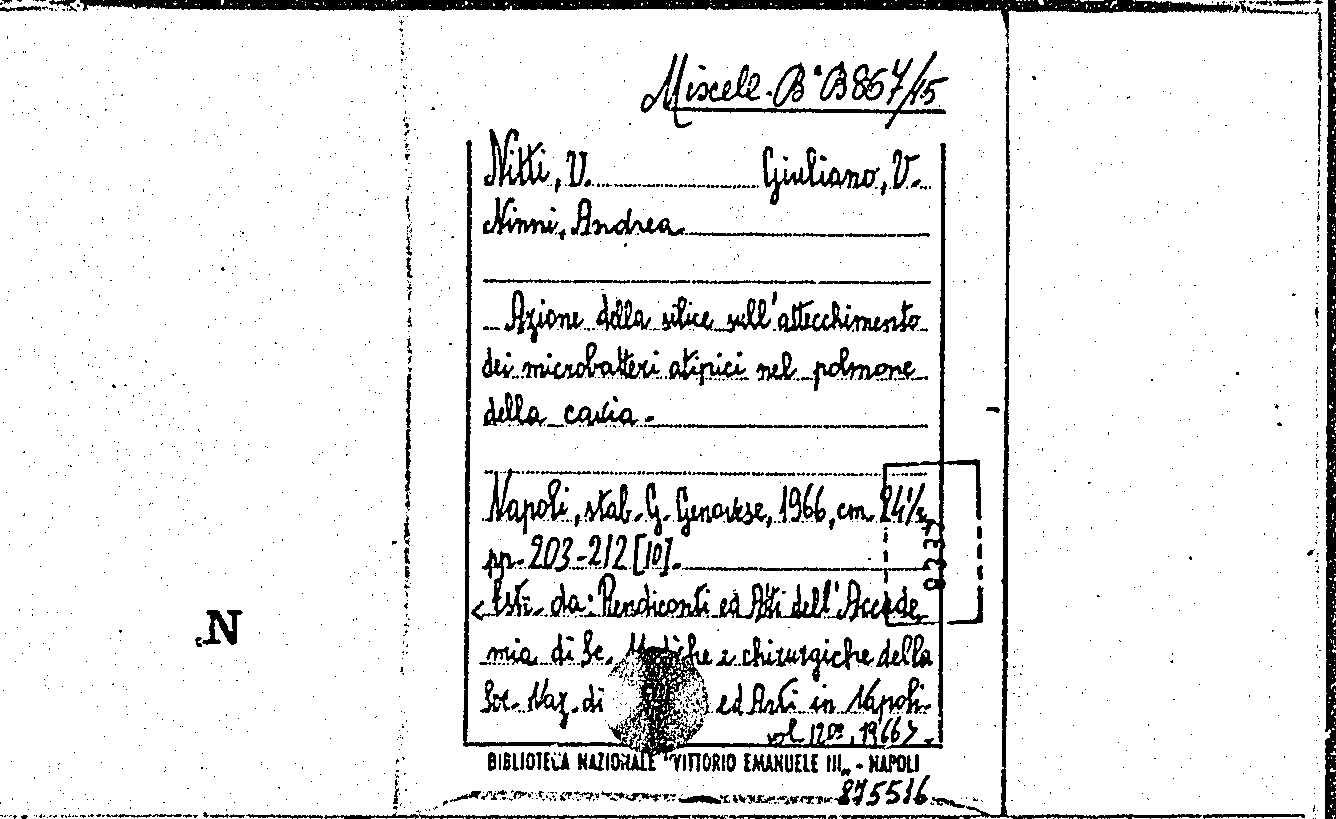 Miscell. B^a B 867/15
Nitti, V. Giuliano, V.
Ninni, Andrea
Azione della silice sull'attecchimento
dei microbatteri atipici nel polmone
della cavia.
Napoli, stab. G. Genovese, 1966, cm. 24½,
pp. 203-212 [10].
8237
<Estr. da: Rendiconti ed Atti dell'Accade
mia di Sc. Mediche e chirurgiche della
N
Soc. Naz. di ed Arti in Napoli.
vol. 120º, 1966>.
BIBLIOTECA NAZIONALE "VITTORIO EMANUELE III„ - NAPOLI
875516